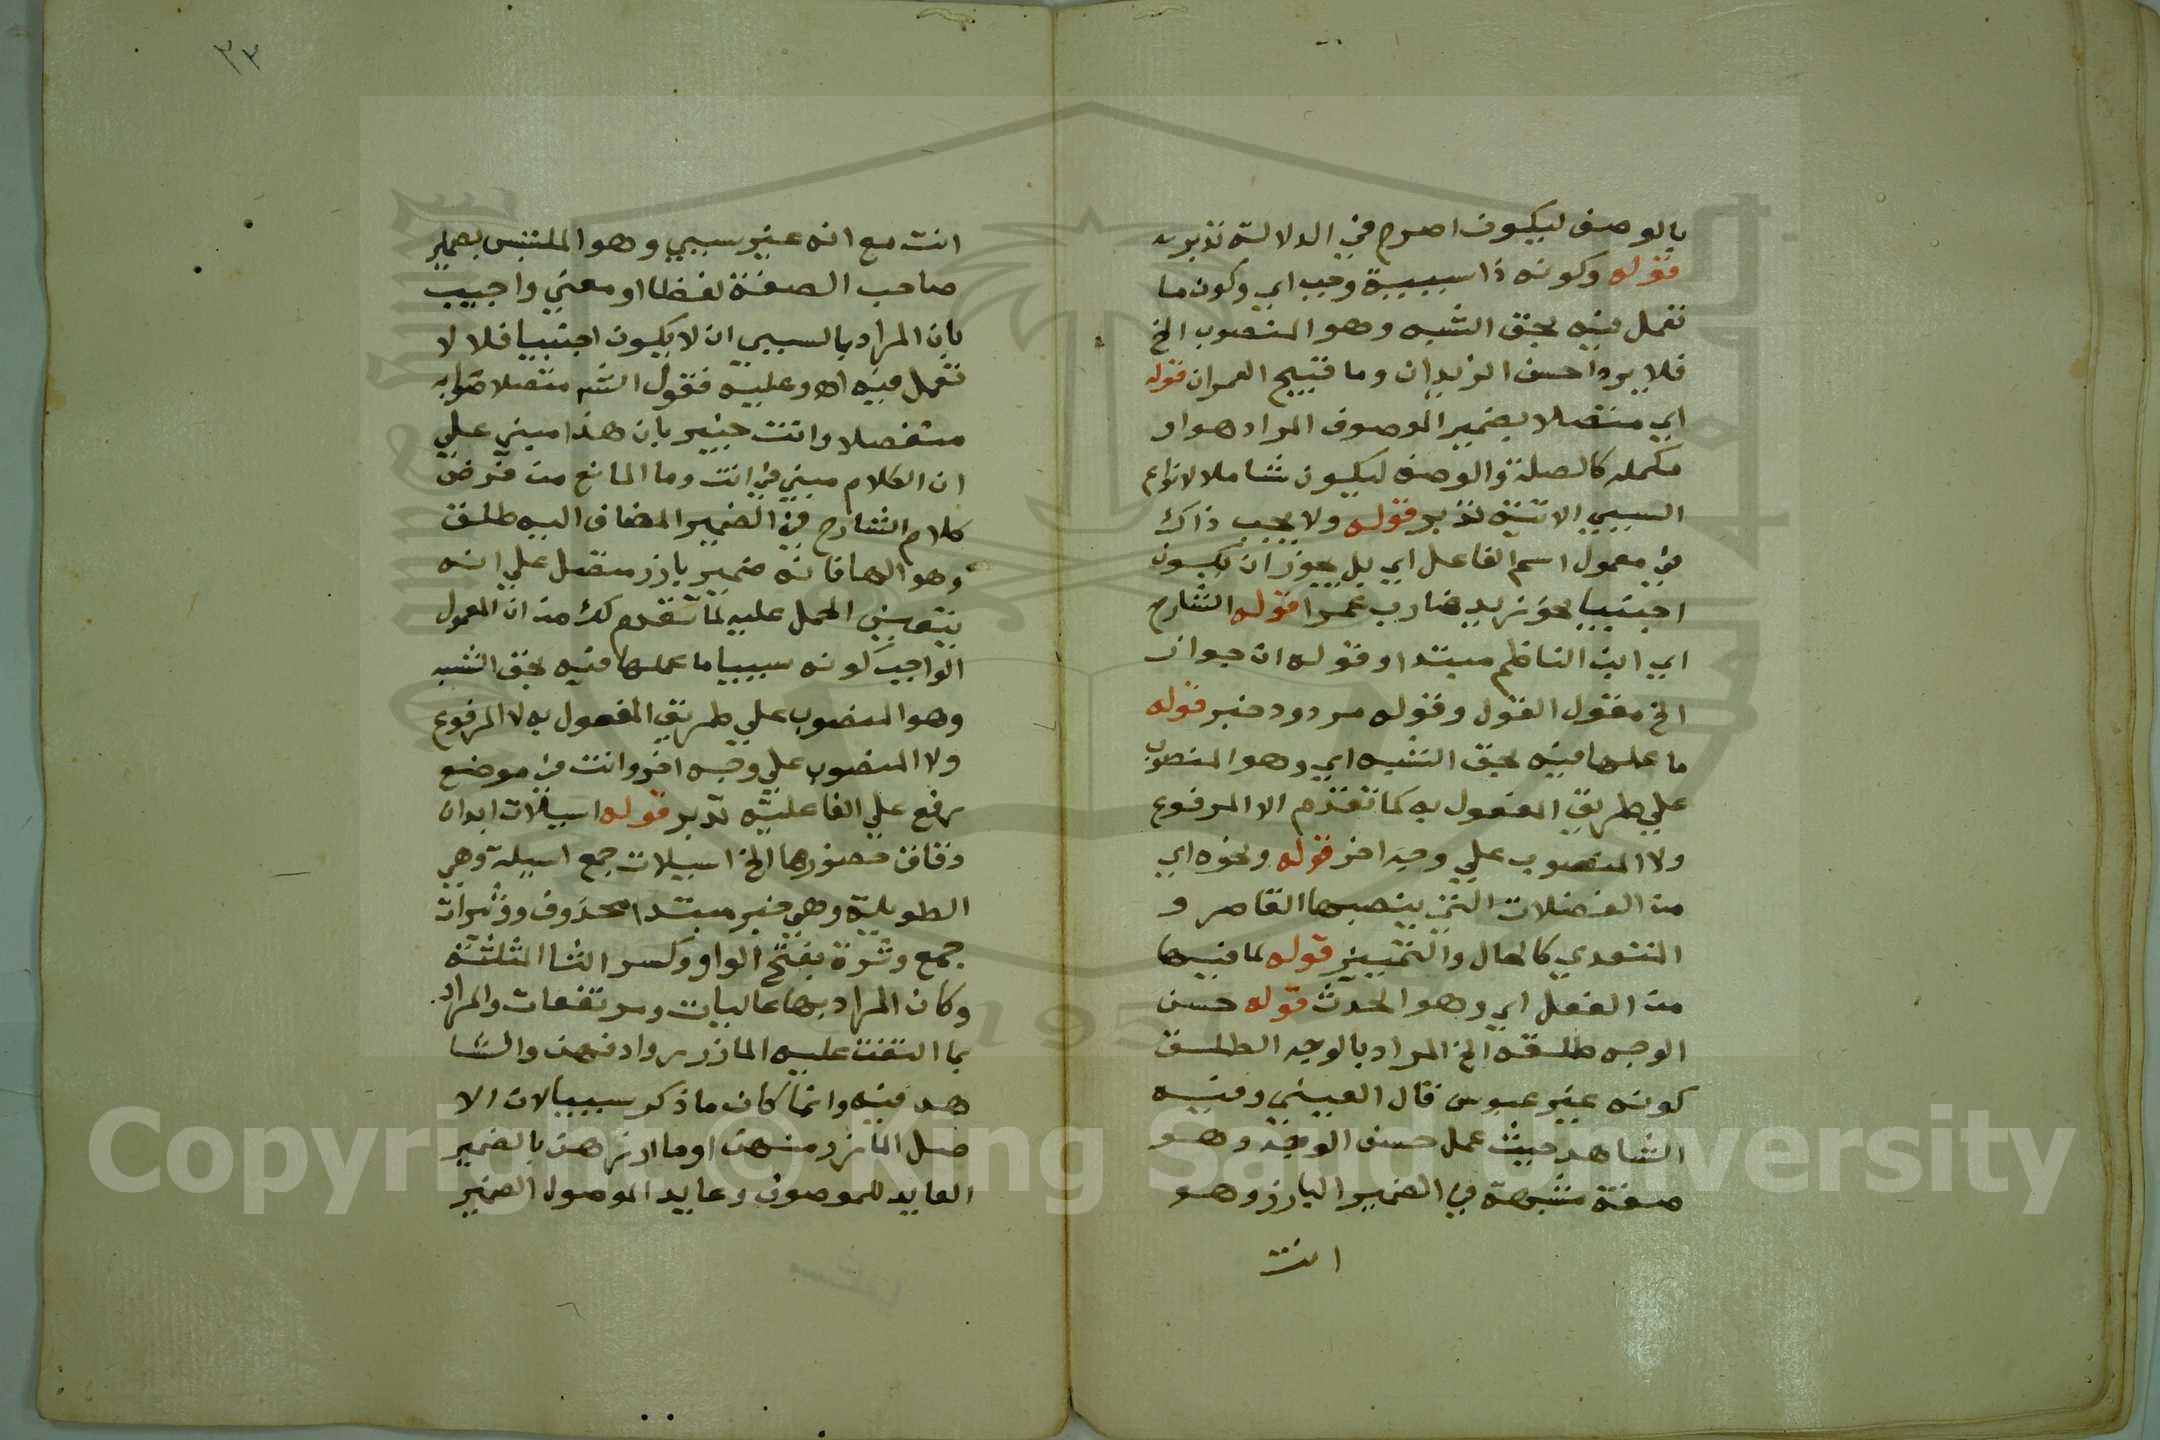 بالوصف ليكون اصرح في الدلالة تدبر
قوله وكونه ذا سببية وجب اي وكون ما
تعمل فيه بحق الشبه وهو المنصوب الخ
فلا يرد احسن الزيدان وما قبيح العمران قوله
اي متصلا بضمير الموصوف المراد هو او
مكمله كالصلة والوصف ليكون شاملا لانواع
السببي الاتية تدبر قوله ولا يجب ذاك
في معمول اسم الفاعل اي بل يجوز ان يكون
اجنبيا نحو زيد ضارب عمرا قوله الشارح
اي ابن الناظم مبتدا وقوله ان جواز
الخ مقول القول وقوله مردود خبر قوله
ما عملها فيه بحق الشبه اي وهو المنصوب
علي طريق المفعول به كما تقدم الا المرفوع
ولا المنصوب علي وجه اخر قوله ونحوه اي
من الفضلات التي ينصبها القاصر و
المتعدي كالحال والتمييز قوله لما فيها
من الفعل اي وهو الحدث قوله حسن
الوجه طلقه الخ المراد بالوجه الطلق
كونه غير عبوس قال العيني وفيه
الشاهد حيث عمل حسن الوجه وهو
صفة مشبهة في الضمير البارز وهو
انت
٣٣
انت مع انه غير سببي وهو الملتبس بضمير
صاحب الصفة لفظا او معني واجيب
بان المراد بالسببي ان لا يكون اجنبيا فلا لا
تعمل فيه اه وعليه فقول الش متصلا صوابه
منفصلا وانت خبير بان هذا مبني علي
ان الكلام مبني في انت وما المانع من فرض
كلام الشارح في الضمير المضاف اليه طلق
وهو الها فانه ضمير بارز متصل علي انه
يتعين الحمل عليه لما تقدم لك من ان المعمول
الواجب كونه سببيا ما عملها فيه بحق الشبه
وهو المنصوب علي طريق المفعول به لا المرفوع
ولا المنصوب علي وجه اخر وانت في موضع
رفع علي الفاعلية تدبر قوله اسيلات ابدان
دقاق خصورها الخ اسيلات جمع اسيلة وهي
الطويلة وهي خبر مبتدا محذوف ووثيرات
جمع وثرة بفتح الواو وكسر الثا المثلثة
وكان المراد بها عاليات ومرتفعات والمراد
بما التفت عليه المازر روادفهن والشا
هد فيه وانما كان ما ذكر سببيا لان الا
صل المازر منهن او ما ازرهن بالضمير
العايد للموصوف وعايد الموصول الضمير
Copyright © King Saud University
1957